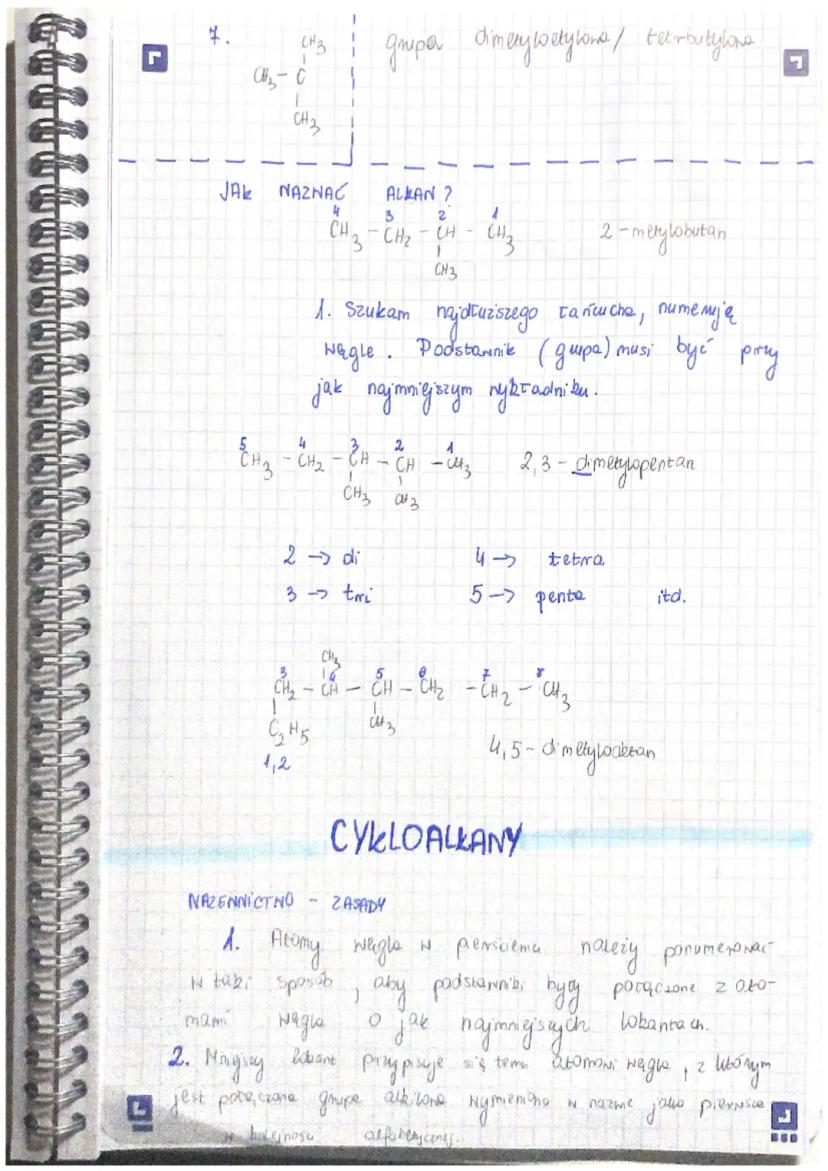 7. CH3 grupa dimetyloetylowa/ tetrbutylowa
CH3 - C
CH3
JAK NAZWAĆ ALKAN?
4 3 2 1
CH3 - CH2 - CH - CH3 2-metylobutan
CH3
1. Szukam najdłuższego łańcucha, numeruję
węgle. Podstawnik (grupa) musi być przy
jak najmniejszym wykładniku.
5 4 3 2 1
CH3 - CH2 - CH - CH - CH3 2,3-dimetylopentan
CH3 CH3
2 → di 4 → tetra
3 → tri 5 → penta itd.
CH3
3 4 5 6 7 8
CH2 - CH - CH - CH2 - CH2 - CH3
C2H5 CH3
1,2 4,5-dimetylooktan
CYKLOALKANY
NAZEWNICTWO - ZASADY
1. Atomy węgla w pierścieniu należy ponumerować
w taki sposób, aby podstawniki były połączone z ato-
mami węgla o jak najmniejszych lokantach.
2. Mniejszy lokant przypisuje się temu atomowi węgla, z którym
jest połączona grupa alkilowa wymieniona w nazwie jako pierwsza
w kolejności alfabetycznej.